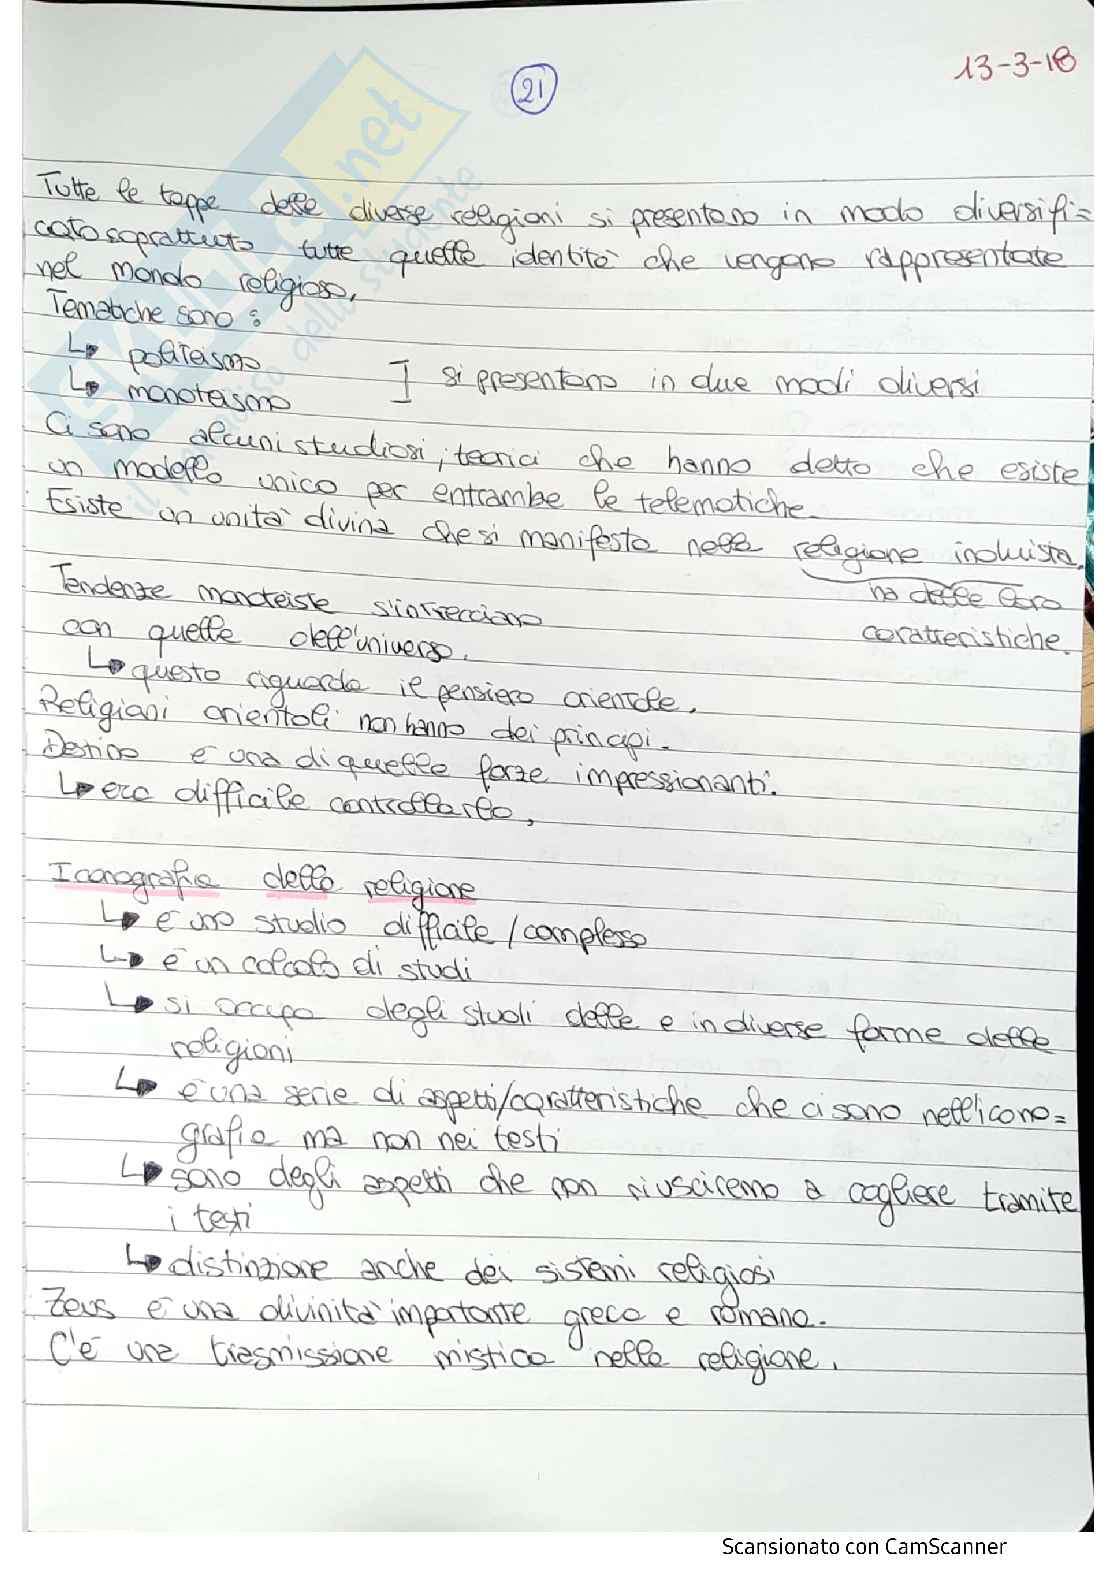 13-3-18
21
Tutte le tappe delle diverse religioni si presentano in modo diversifi=
cato soprattutto tutte quelle identità che vengono rappresentate
nel mondo religioso,
Tematiche sono:
↳ politeismo
↳ monoteismo
I si presentano in due modi diversi
Ci sono alcuni studiosi, teorici che hanno detto che esiste
un modello unico per entrambe le telematiche.
Esiste un unità divina che si manifesta nella religione induista,
ha delle loro
caratteristiche.
Tendenze monoteiste s'intrecciano
con quelle dell'universo.
↳ questo riguarda il pensiero orientale.
Religioni orientali non hanno dei principi.
Destino è una di quelle forze impressionanti.
↳ era difficile controllarlo,
Iconografia della religione
↳ è uno studio difficile/complesso
↳ è un calcolo di studi
↳ si occupa degli studi delle e in diverse forme delle
religioni
↳ è una serie di aspetti/caratteristiche che ci sono nell'icono=
grafia ma non nei testi
↳ sono degli aspetti che non riusciremo a cogliere tramite
i testi
↳ distinzione anche dei sistemi religiosi
Zeus è una divinità importante greca e romana.
C'è una trasmissione mistica nella religione.
SKUOLA.net
il paradiso dello studente
Scansionato con CamScanner